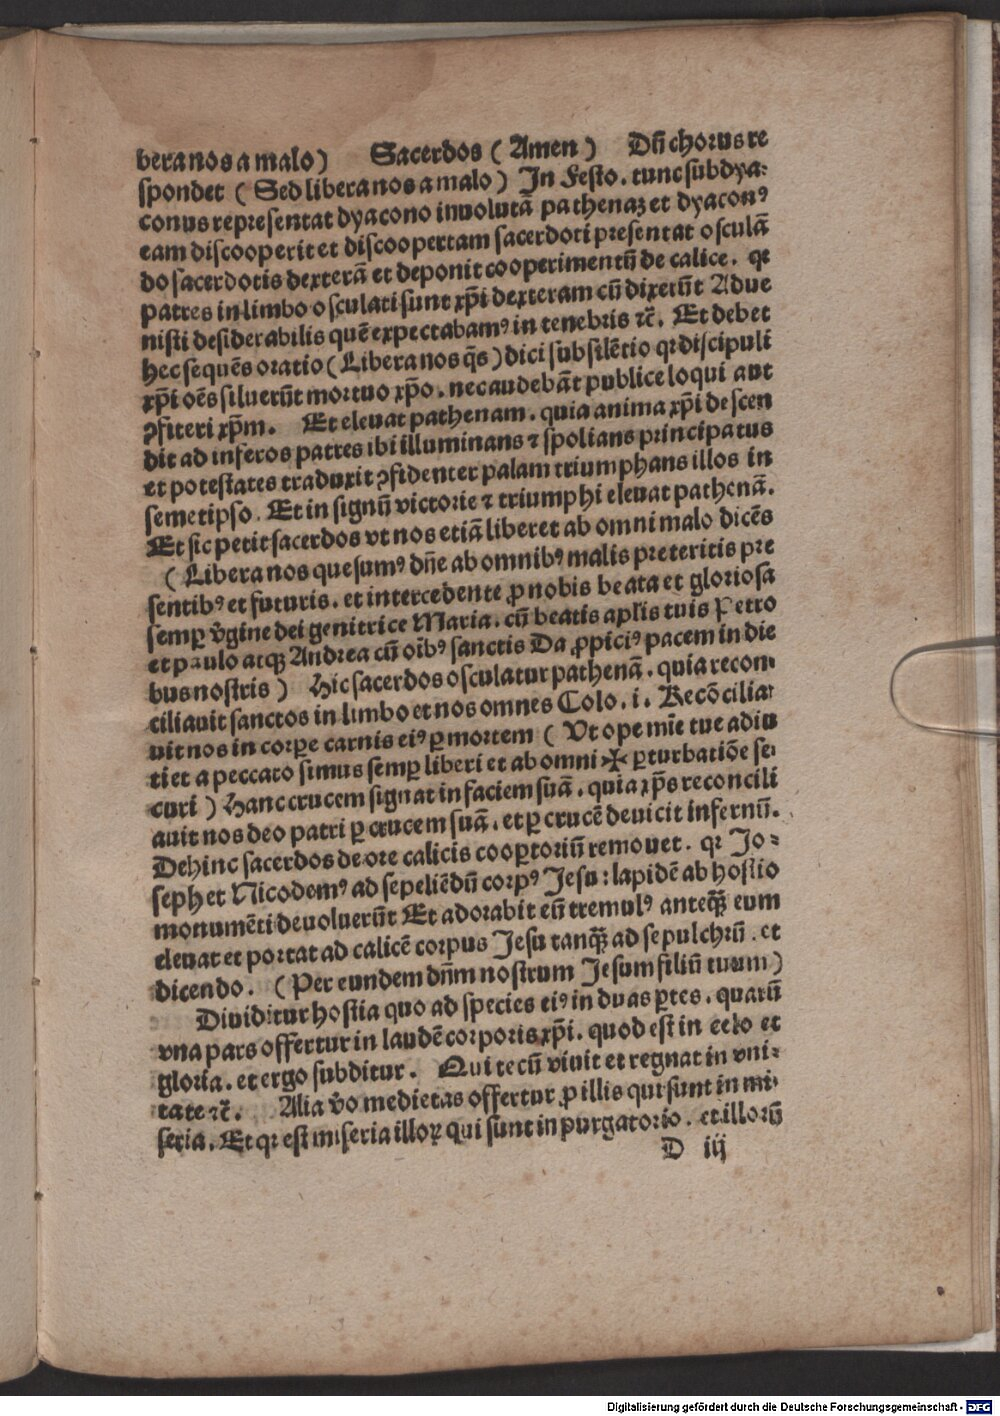 bera nos a malo) Sacerdos ( Amen ) Dn̄ chorus re
spondet ( Sed libera nos a malo ) In Festo . tunc subdya⸗
conus representat dyacono involutā pathenaꝫ et dyaconꝰ
eam discooperit et discoopertam sacerdoti presentat osculā
do sacerdotis dexterā et deponit cooperimentū de calice . qꝛ
patres in limbo osculati sunt xp̄i dexteram cū dixerūt Adue
nisti desiderabilis quē expectabamꝰ in tenebris ⁊c̄ . Et debet
hec sequēs oratio ( Libera nos q̄s ) dici sub silētio qꝛ discipuli
xp̄i oēs siluerūt mortuo xp̄o . nec audebāt publice loqui aut
ꝯfiteri xp̄m . Et eleuat pathenam . quia anima xp̄i descen
dit ad inferos patres ibi illuminans ⁊ spolians principatus
et potestates traduxit ꝯfidenter palam triumphans illos in
semetipso . Et in signū victorie ⁊ triumphi eleuat pathenā .
Et sic petit sacerdos vt nos etiā liberet ab omni malo dicēs
( Libera nos quesumꝰ dn̄e ab omnibꝰ malis preteritis pre
sentibꝰ et futuris . et intercedente ꝓ nobis beata et gloriosa
semꝑ v̄gine dei genitrice Maria . cū beatis aplis tuis Petro
et paulo atqꝫ Andrea cū oībꝰ sanctis Da ꝓpiciꝰ pacem in die
bus nostris ) Hic sacerdos osculatur pathenā . quia recon⸗
ciliauit sanctos in limbo et nos omnes Colo . i . Recōcilia⸗
uit nos in corpe carnis eiꝰ ꝑ mortem ( Vt ope mīe tue adiu
ti et a peccato simus semꝑ liberi et ab omni ✠ ꝑturbatiōe se⸗
curi ) Hanc crucem signat in faciem suā . quia xp̄s reconcili
auit nos deo patri ꝑ crucem suā . et ꝑ crucē deuicit infernū .
Dehinc sacerdos de ore calicis cooꝑtoriū remouet . qꝛ Jo⸗
seph et Nicodemꝰ ad sepeliēdū corpꝰ Jesu : lapidē ab hostio
monumēti deuoluerūt Et adorabit eū tremulꝰ anteqꝫ̄ eum
eleuat et portat ad calicē corpus Jesu tanqꝫ̄ ad sepulchrū . et
dicendo . ( Per eundem dn̄m nostrum Jesum filiū tuum )
Diuiditur hostia quo ad species eiꝰ in duas ꝑtes . quarū
vna pars offertur in laudē corporis xp̄i . quod est in celo et
gloria . et ergo subditur . Qui tecū viuit et regnat in vni⸗
tate ⁊c̄ . Alia v̄o medietas offertur ꝓ illis qui sunt in mi⸗
seria . Et qꝛ est miseria illoꝝ qui sunt in purgatorio . et illorū
D iij
Digitalisierung gefördert durch die Deutsche Forschungsgemeinschaft - DFG